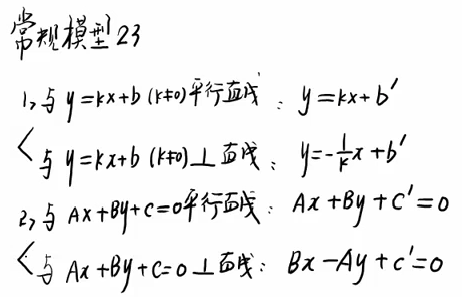 常规模型23
1, 与 y=kx+b (k≠0)平行直线: y=kx+b′
< 与 y=kx+b (k≠0)⊥直线: y=-1/k x+b′
2, 与 Ax+By+C=0平行直线: Ax+By+C′=0
< 与 Ax+By+C=0⊥直线: Bx-Ay+C′=0